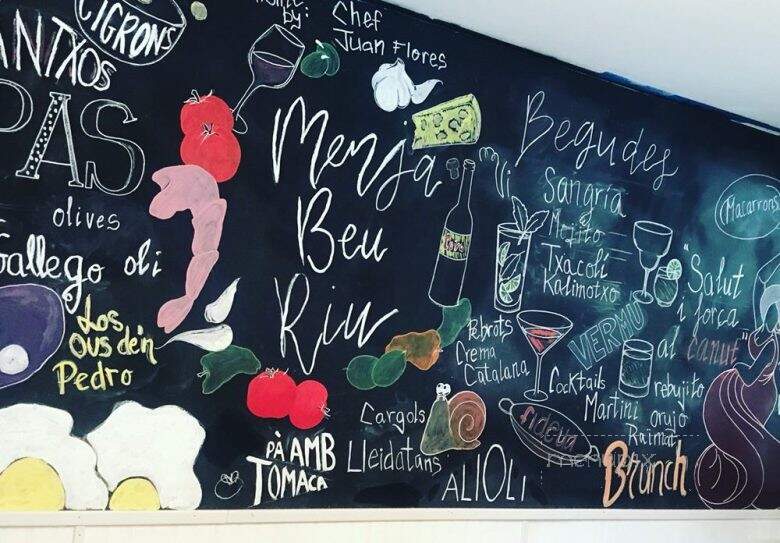 CIGRONS
ANTXOS
PAS
olives
Gallego oli
Los
Ous de'n
Pedro
by:
Chef
Juan Flores
Menja
Beu
Riu
PÀ AMB
TOMACA
Begudes
Sangría
y
Mojito
Txacolí
Kalimotxo
Pebrots
Crema
Catalana
Cargols
Lleidatans
ALIOLI
VERMU
Cocktails
Martini
rebujito
orujo
Raïmat
fideua
Brunch
Macarrons
"Salut
i força
al
canut"